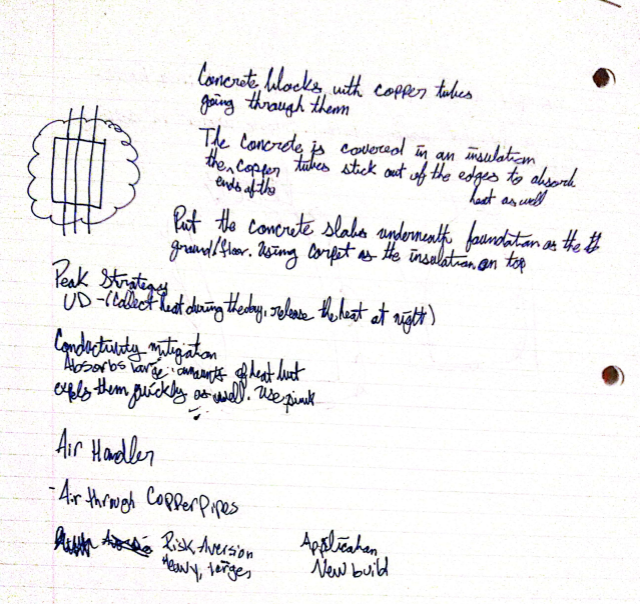 Concrete blocks with copper tubes
going through them
The concrete is covered in an insulation
the copper tubes stick out of the edges to absorb
ends of the
heat as well
Put the concrete slabs underneath foundation as the
ground/floor. Using carpet as the insulation on top
Peak Strategy
UD - (Collect heat during the day, release the heat at night)
Conductivity mitigation
Absorbs large amounts of heat but
expels them quickly as well. Use pink
Air Handler
- Air through Copper Pipes
Risk Aversion
Application
Heavy, larges
New build